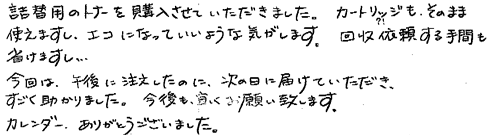 詰替用のトナーを購入させていただきました。 カートリッジも、そのまま
使えますし、エコになっていいような気がします。 回収依頼する手間も
省けますし…
今回は、午後に注文したのに、次の日に届けていただき、
すごく助かりました。 今後も、宜しくお願い致します。
カレンダー、ありがとうございました。